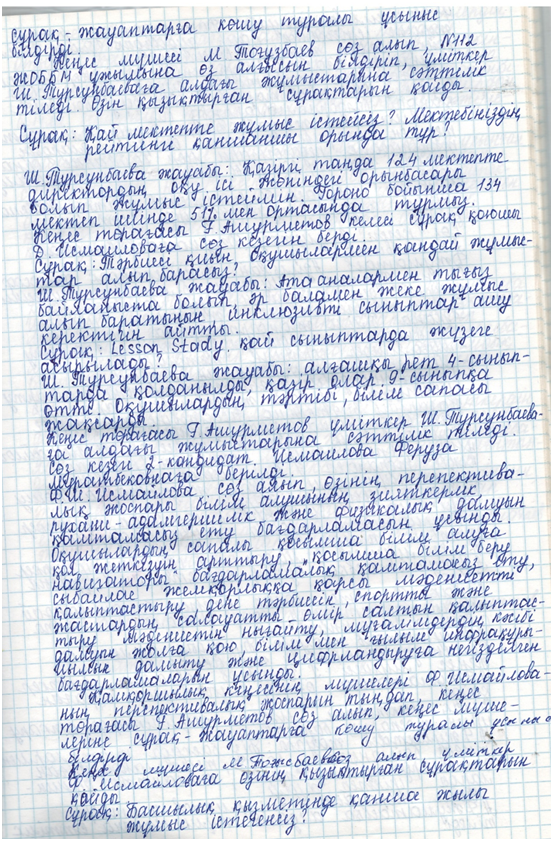 сұрақ - жауаптарға көшу туралы ұсыныс
білдірді.
Кеңес мүшесі М Тоғузбаев сөз алып, №112
ЖОББМ ұжымына өз алғысын білдіріп, үміткер
Ш. Турсунбаеваға алдағы жұмыстарына сәттілік
тіледі. Өзін қызықтырған сұрақтарын қойды.
Сұрақ: Қай мектепте жұмыс істейсіз? Мектебініздің
рейтинге қаншаншы орында тұр?
Ш. Турсунбаева жауабы: Қазіргі таңда 124 мектепте
директордың оқу ісі жөніндегі орынбасары
болып жұмыс істеймін. Гороно бойынша 134
мектеп ішінде 51% мен ортасында тұрмыз.
Кеңес төрағасы Г. Ашурметов келесі сұрақ қоюшы
Д. Исмаиловаға сөз кезегін берді.
Сұрақ: Тәрбиесі қиын оқушылармен қандай жұмыс-
тар алып барасыз?
Ш. Турсунбаева жауабы: Ата аналармен тығыз
байланыста болып, әр баламен жеке жұмыс
алып баратынын инклюзивті сыныптар ашу
керектігін айтты.
Сұрақ: Lesson Stady қай сыныптарда жүзеге
асырылады?
Ш. Турсунбаева жауабы: алғашқы рет 4-сынып-
тарда қолданылды, қазір олар 9-сыныпқа
өтті. Оқушылардың тәртібі, білім сапасы
жақсарды.
Кеңес төрағасы Г. Ашурметов үміткер Ш. Турсунбаева-
ға алдағы жұмыстарына сәттілік тіледі.
Сөз кезегі 2-кандидат Исмаилова Феруза
Муратбековнаға берілді.
Ф. Исмаилова сөз алып, өзінің перепектива-
лық жоспары білім алушының зияткерлік
рухани-адамгершілік және физикалық дамуын
қамтамасыз ету бағдарламасын ұсынды.
Оқушылардың сапалы қосымша білім алуға
қол жеткізуін арттыру, "қосымша білім беру
навигаторы" бағдарламалық қамтамасыз ету,
сыбайлас жемқорлыққа қарсы мәдениетті
қалыптастыру, дене тәрбиесін, спортты және
жастардың салауатты өмір салтын қалыптас-
тыру мәдениетін нығайту, мұғалімдердің кәсіби
дамуын жолға қою, білім мен ғылым инфрақұры-
лымын дамыту және цифрландыруға негізделген
бағдарламаларын ұсынды.
Қамқоршылық кеңесінің мүшелері Ф. Исмайлова-
ның перспективалық жоспарын тыңдап, кеңес
төрағасы Г. Ашурметов сөз алып, кеңес мүше-
леріне сұрақ-жауаптарға көшу туралы ұсыныс
білдірді
Кеңес мүшесі М сөз алып үміткер
Ф. Исмаиловаға өзінің қызықтырған сұрақтарын
қойды
Сұрақ: Басшылық қызметінде қанша жылы
жұмыс істегенсіз?